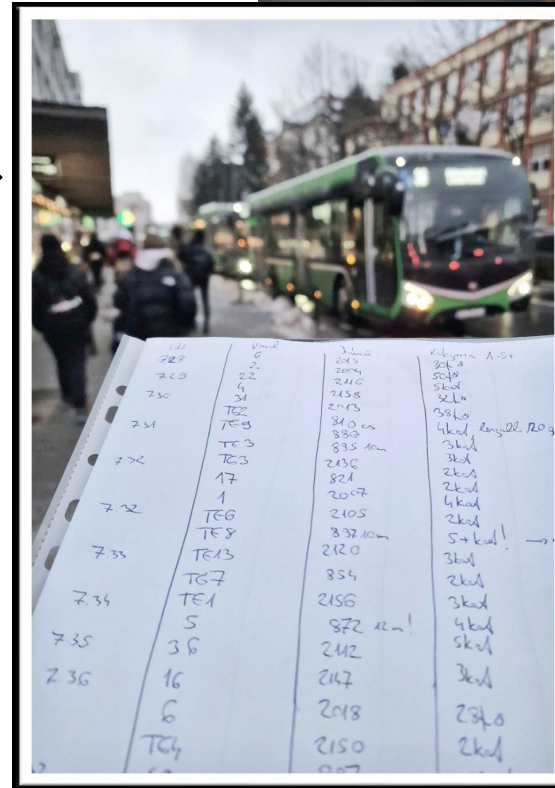 6 2015 30fő
728 2 2004 50fő
729 22 2116 5kat
4 2158 32fő
730 31 2013 38fő
TE2 810 4kat
731 TE9 880 3kat
TE3 835 10m 3kat
732 TE3 2136 2kat
17 821 2kat
1 2007 4kat
7.32 TE6 2105 2kat
TE8 897 10m 5+kat!
7.33 TE13 2120 3kat
TE7 854 2kat
7.34 TE1 2156 3kat
5 872 12m! 4kat
7.35 36 2112 5kat
7.36 16 2147 3kat
6 2018 28fő
TE4 2150 2kat